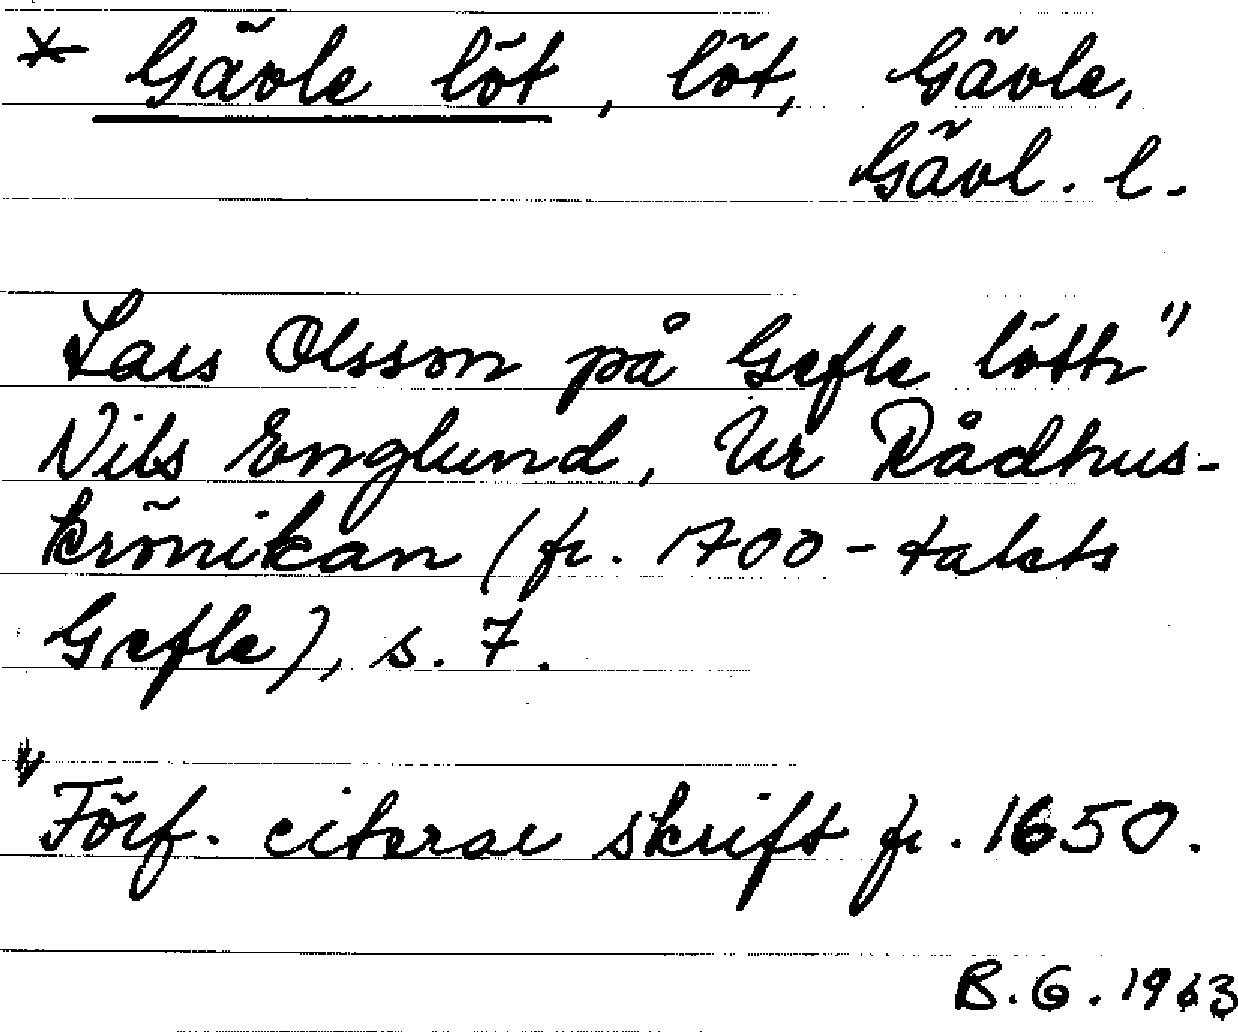 * Gävle löt, löt, Gävle,
Gävl. l.
Lars Olsson på Gefle lötth"
Nils Englund, Ur Rådhus-
krönikan (fr. 1700-talets
Gefle), s. 7.
" Förf. citerar skrift fr. 1650.
B.G. 1963